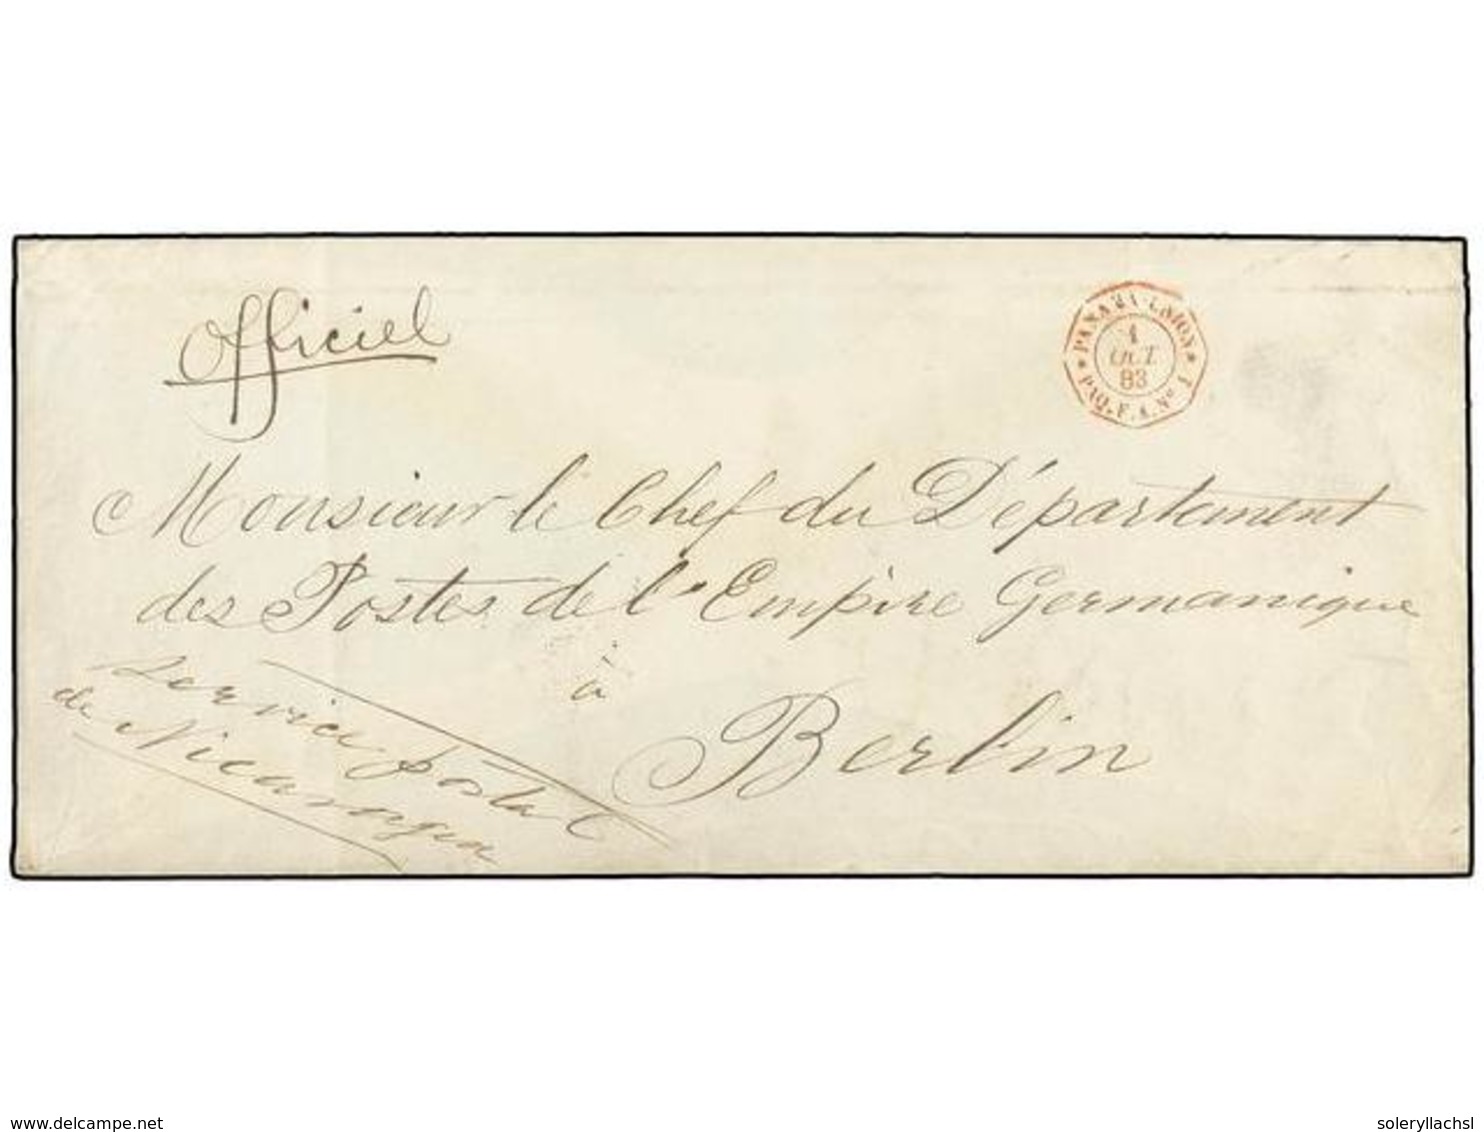 Officiel
PANAMA UNION
1
OCT
83
PAQ. F. A. Nº 1
Monsieur le Chef du Département
des Postes de l'Empire Germanique
à
Berlin
Service postal
de Nicaragua
delcampe.net
soleryllachsl